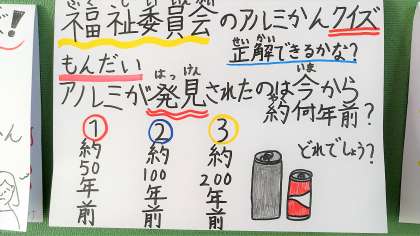 福祉委員会のアルミかんクイズ
ふくしいいんかい
正解できるかな?
せいかい
もんだい
アルミが発見されたのは今から
はっけん
いま
約何年前?
やく
①約50年前
②約100年前
③約200年前
どれでしょう?